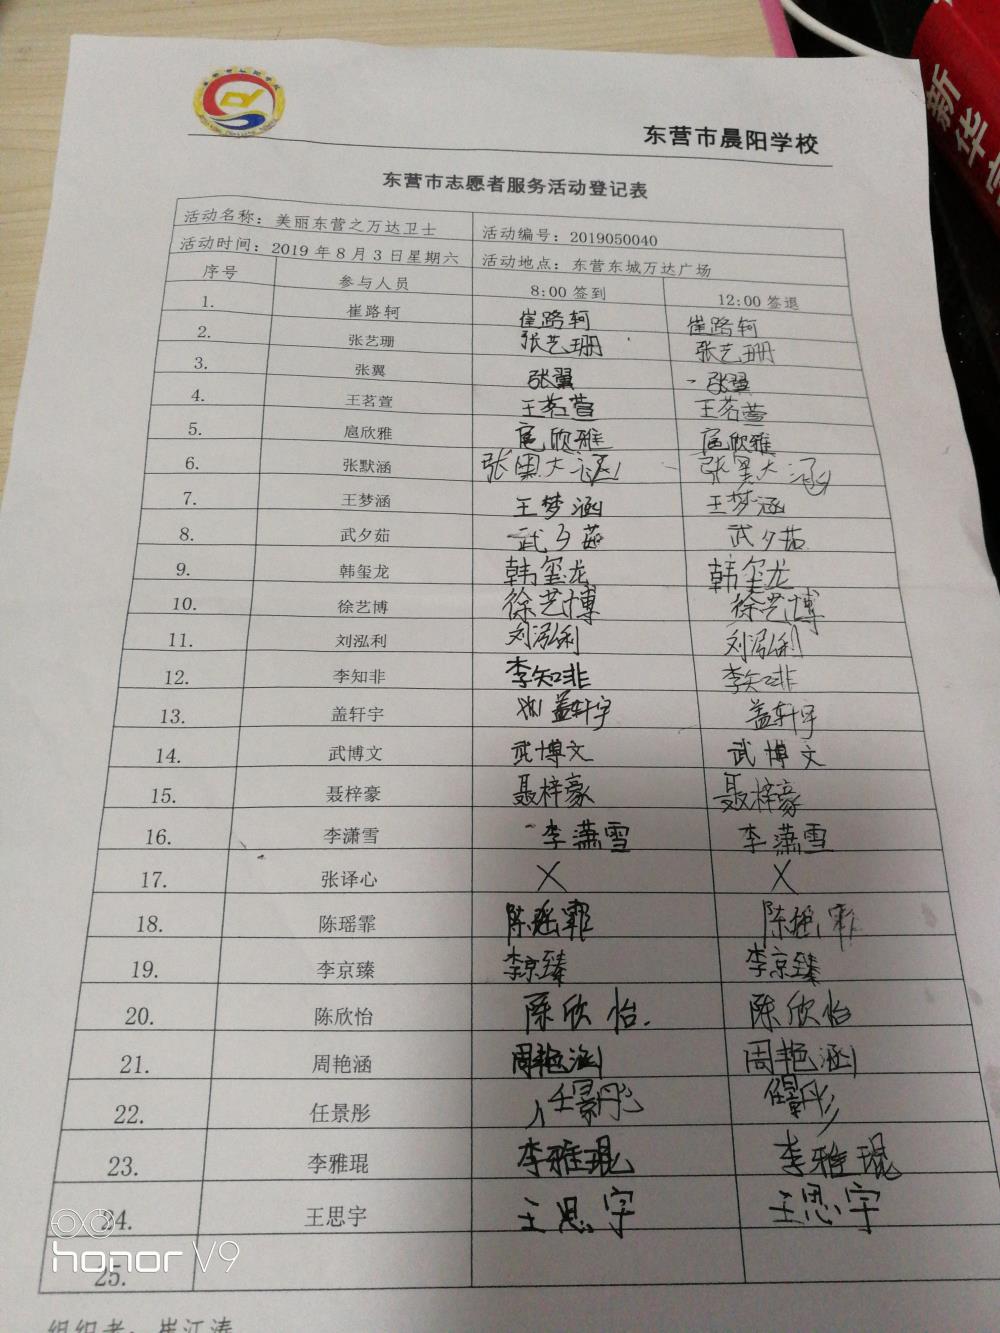 新华字
东营市晨阳学校
东营市志愿者服务活动登记表
活动名称：美丽东营之万达卫士 活动编号：2019050040
活动时间：2019年8月3日星期六 活动地点：东营东城万达广场
序号 参与人员 8:00 签到 12:00 签退
1. 崔路轲 崔路轲 崔路轲
2. 张艺珊 张艺珊 张艺珊
3. 张翼 张翼 张翼
4. 王茗萱 王茗萱 王茗萱
5. 扈欣雅 扈欣雅 扈欣雅
6. 张默涵 张默涵 张默涵
7. 王梦涵 王梦涵 王梦涵
8. 武夕茹 武夕茹 武夕茹
9. 韩玺龙 韩玺龙 韩玺龙
10. 徐艺博 徐艺博 徐艺博
11. 刘泓利 刘泓利 刘泓利
12. 李知非 李知非 李知非
13. 盖轩宇 盖轩宇 盖轩宇
14. 武博文 武博文 武博文
15. 聂梓豪 聂梓豪 聂梓豪
16. 李潇雪 李潇雪 李潇雪
17. 张译心 X X
18. 陈瑶霏 陈瑶霏 陈瑶霏
19. 李京臻 李京臻 李京臻
20. 陈欣怡 陈欣怡. 陈欣怡
21. 周艳涵 周艳涵 周艳涵
22. 任景彤 任景彤 任景彤
23. 李雅琨 李雅琨 李雅琨
24. 王思宇 王思宇 王思宇
25.
honor V9
组织者：崔江涛